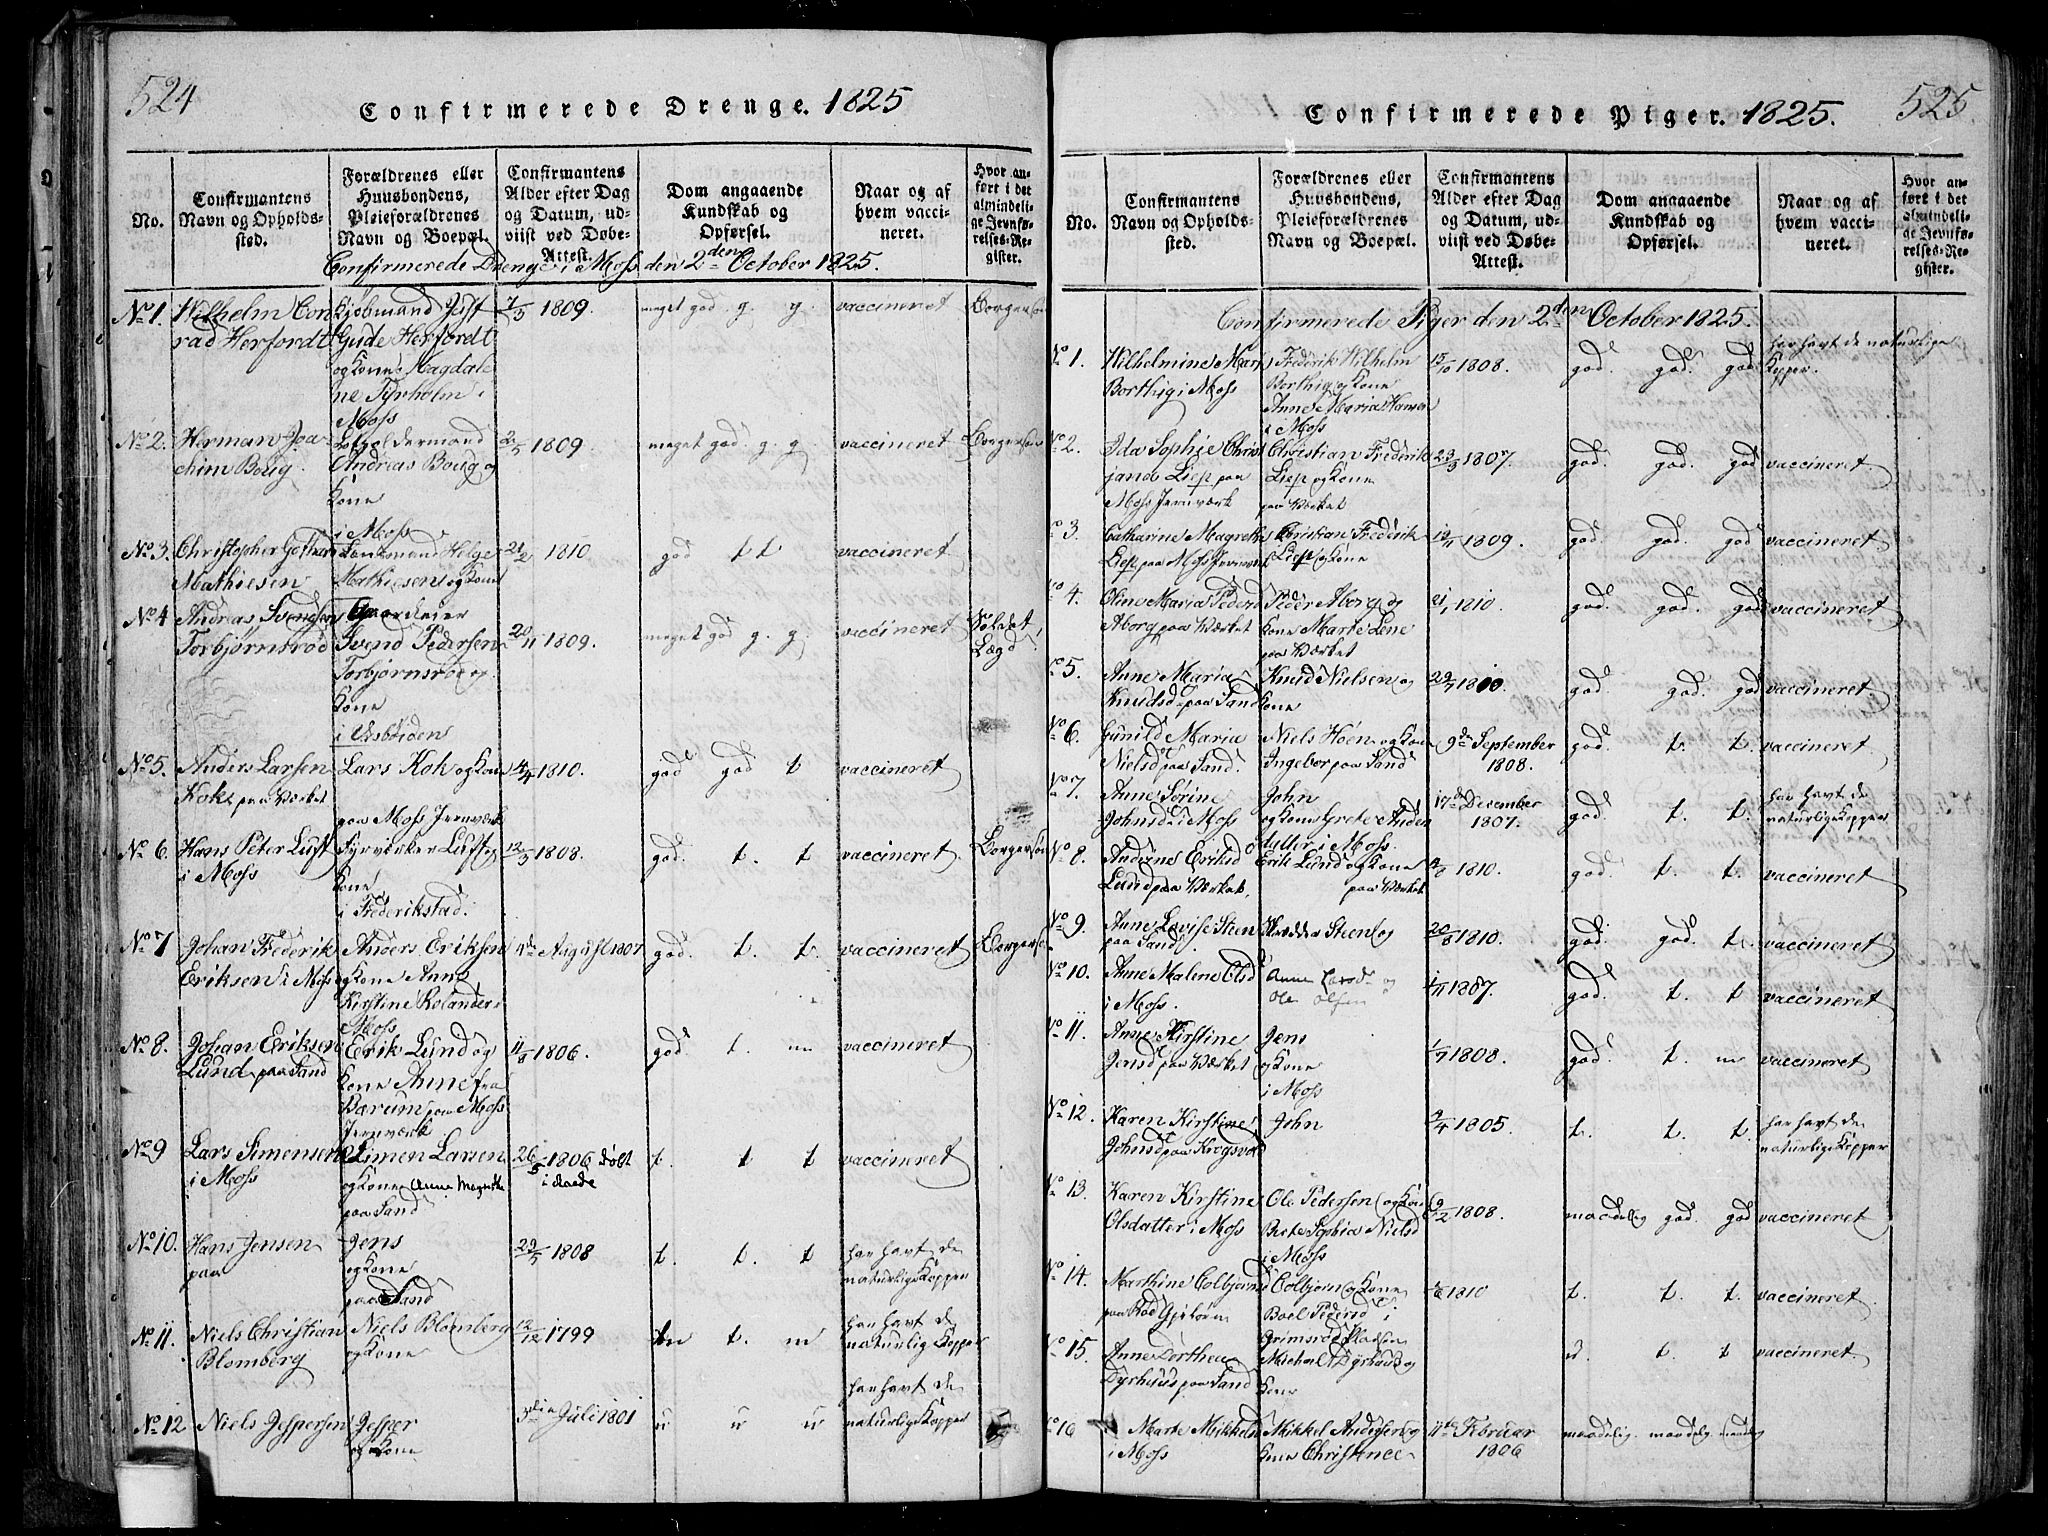 524
Confirmerede Drenge. 1825
No.
Confirmantens Navn og Opholds-sted.
Forældrenes eller Huusbondens, Pleieforældrenes Navn og Boepæl.
Confirmantens Alder efter Dag og Datum, ud-viist ved Døbe-Attest.
Dom angaaende Kundskab og Opførsel.
Naar og af hvem vacci-neret.
Hvor an-ført i det almindeli-ge Jevnfø-relses-Re-gister.
Confirmerede Drenge i Moss den 2den October 1825.
No 1. Wilhelm Con Kjøbmand 7/5 1809. meget god g. g. vaccineret Borgersøn
rad Herfordt Gude Herfordt
og Kone Magdale
ne Tyrholm i
Moss
No 2. Herman Joa 2/5 1809 meget god. g. g. vaccineret Borgersøn
chim Boug. Andreas Boug og
Kone
i Moss
No 3. Christopher Lensmand Helge 21/2 1810 god t t vaccineret
Mathiesen Mathiesen og Kone
No 4 Andreas Svendsen Gaardeier
Torbjørnsrød Svend Pedersen 20/11 1809. meget god g. g. vaccineret Soldat Lægd
Torbjørnsrød og
Kone
No 5. Anders Larsen Lars Kok og Kone 4/4 1810. god god t vaccineret
Kok paa Værket
paa Moss Jernværk
No 6. Hans Peter Lust Fyrverker Lust og 12/3 1808. god. t. t vaccineret Borgersøn
i Moss Kone
i Frederikstad.
No 7 Johan Frederik Anders Eriksen 4de August 1807 god. t. t. vaccineret
Eriksen i Moss og Kone Anne
Kirstine Rolander i
Moss
No 8. Johan Eriksen Erik Lund og 11/8 1806. god. t. m vaccineret
Lund paa Sand Kone Anne fra
Bærum paa Moss
Jernværk
No 9 Lars Simensen Simen Larsen 26/5 1806 døbt t. t t vaccineret
i Moss og Kone Anne Magrethe i Raade
paa Sand
No 10. Hans Jensen Jens 29/5 1808 t. t. t har havt de
paa og Kone naturlige Kopper
paa Sand
No 11. Niels Christian Niels Blomberg 12/12 1799 tm t. m har havt de
Blomberg og Kone naturlig Kopper
No 12 Niels Jespersen Jesper 3die Juli 1801 u u u har havt de
og Kone naturlige Kopper
Confirmerede Piger. 1825. 525.
No.
Confirmantens Navn og Opholds-sted.
Forældrenes eller Huusbondens, Pleieforældrenes Navn og Boepæl.
Confirmantens Alder efter Dag og Datum, ud-viist ved Døbe-Attest.
Dom angaaende Kundskab og Opførsel.
Naar og af hvem vacci-neret.
Hvor an-ført i det almindeli-ge Jevnfø-relses-Re-gister.
Confirmerede Piger den 2den October 1825.
No 1. Wilhelmine Mar Frederik Wilhelm 15/10 1808. god. god. god har havt de naturlige
Borthig i Moss Borthig og Kone Kopper.
Anne Maria Hansen
i Moss
No 2. Ida Sophie Christ Christian Frederik 23/3 1807. god. god. god vaccineret
jana Liep paa Liep og Kone
Moss Jernværk paa Værket
No 3. Catharine Magrethe Christian Frederik 1809. god. god. god vaccineret
Liep paa Moss Jernværk Liep og Kone
No 4. Oline Maria Peders Peder Aborg og 21/1 1810 god. god. god vaccineret
Aborg paa Værket Kone Marte Lene
paa Værket
No 5. Anne Maria Knud Nielsen og 29/7 1810. god god. god vaccineret
Knudsd. paa Sand Kone
No 6. Gunild Maria Niels Høen og Kone 9de September god t. t. vaccineret
Nielsd paa Sand. Ingebor paa Sand 1808.
No 7. Anne Sørine John 17de December god. t. t. har havt de
Johnsd. i Moss og Kone Grete Anders 1807. naturlige Kopper
datter i Moss.
No 8. Anderne Eriksd Erik Lund og Kone 1810. god. t. t. vaccineret
Lund paa Værket. paa Værket
No 9. Anne Lovise Steen Skrædder Steen og 20/8 1810. god. god. t. vaccineret
paa Sand
No 10. Anne Malene Olsd Anne Larsd og 1/11 1807. god. t. t vaccineret
i Moss. Ole Olsen
No 11. Anne Kirstine Jens 1/7 1808. god t. m vaccineret
Jensd paa Værket og Kone
i Moss
No 12. Karen Kirstine John 2/4 1805. t. t. t har havt de
Johnsd paa naturlige Kopper
No 13. Karen Kirstine Ole Pedersen og Kone 9/2 1808. maadelig god. god vaccineret
Olsdatter i Moss Berte Sophia Nielsd
i Moss
No 14. Marthine Colbjørnsd Colbjørn og Kone 1810 t. t. t. vaccineret
paa Boel Pedersd i
Grimsrød Pladsen
No 15. Anne Dorthea Michael Dyrhuus og u. t. t vaccineret.
Dyrhuus paa Sand Kone
No 16 Marte Mikkelsd Mikkel Andersen og 11te Februar maadelig. maadelig maadelig
i Moss Kone Christence 1806